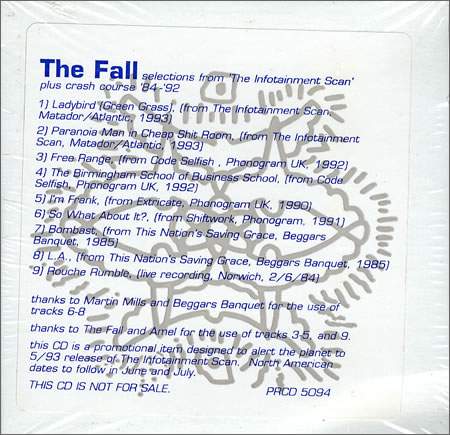 The Fall selections from 'The Infotainment Scan'
plus crash course '84-'92
1) Ladybird (Green Grass), (from The Infotainment Scan,
Matador/Atlantic, 1993)
2) Paranoia Man in Cheap Shit Room, (from The Infotainment
Scan, Matador/Atlantic, 1993)
3) Free Range, (from Code Selfish , Phonogram UK, 1992)
4) The Birmingham School of Business School, (from Code
Selfish, Phonogram UK, 1992)
5) I'm Frank, (from Extricate, Phonogram UK, 1990)
6) So What About It?, (from Shiftwork, Phonogram, 1991)
7) Bombast, (from This Nation's Saving Grace, Beggars
Banquet, 1985)
8) L.A., (from This Nation's Saving Grace, Beggars Banquet, 1985)
9) Rouche Rumble, (live recording, Norwich, 2/6/84)
thanks to Martin Mills and Beggars Banquet for the use of
tracks 6-8
thanks to The Fall and Amel for the use of tracks 3-5, and 9.
this CD is a promotional item designed to alert the planet to
5/93 release of The Infotainment Scan. North American
dates to follow in June and July.
THIS CD IS NOT FOR SALE. PRCD 5094